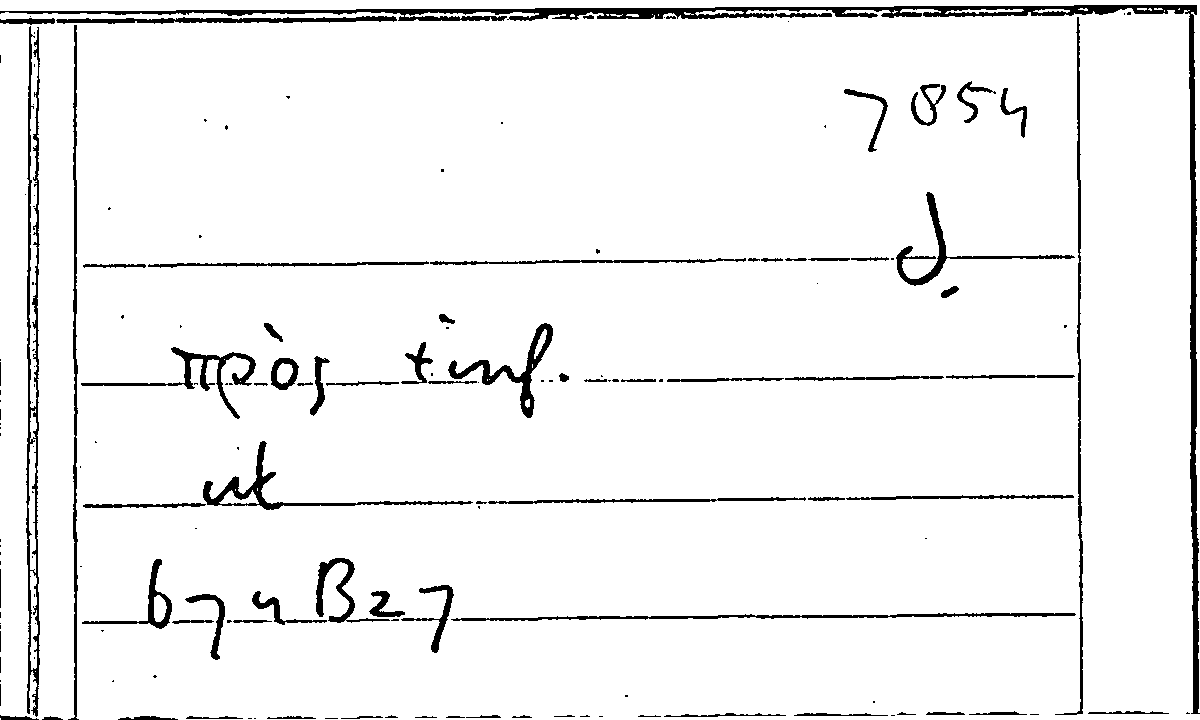 7854
d.
πρὸς + inf.
ut
674 B 27